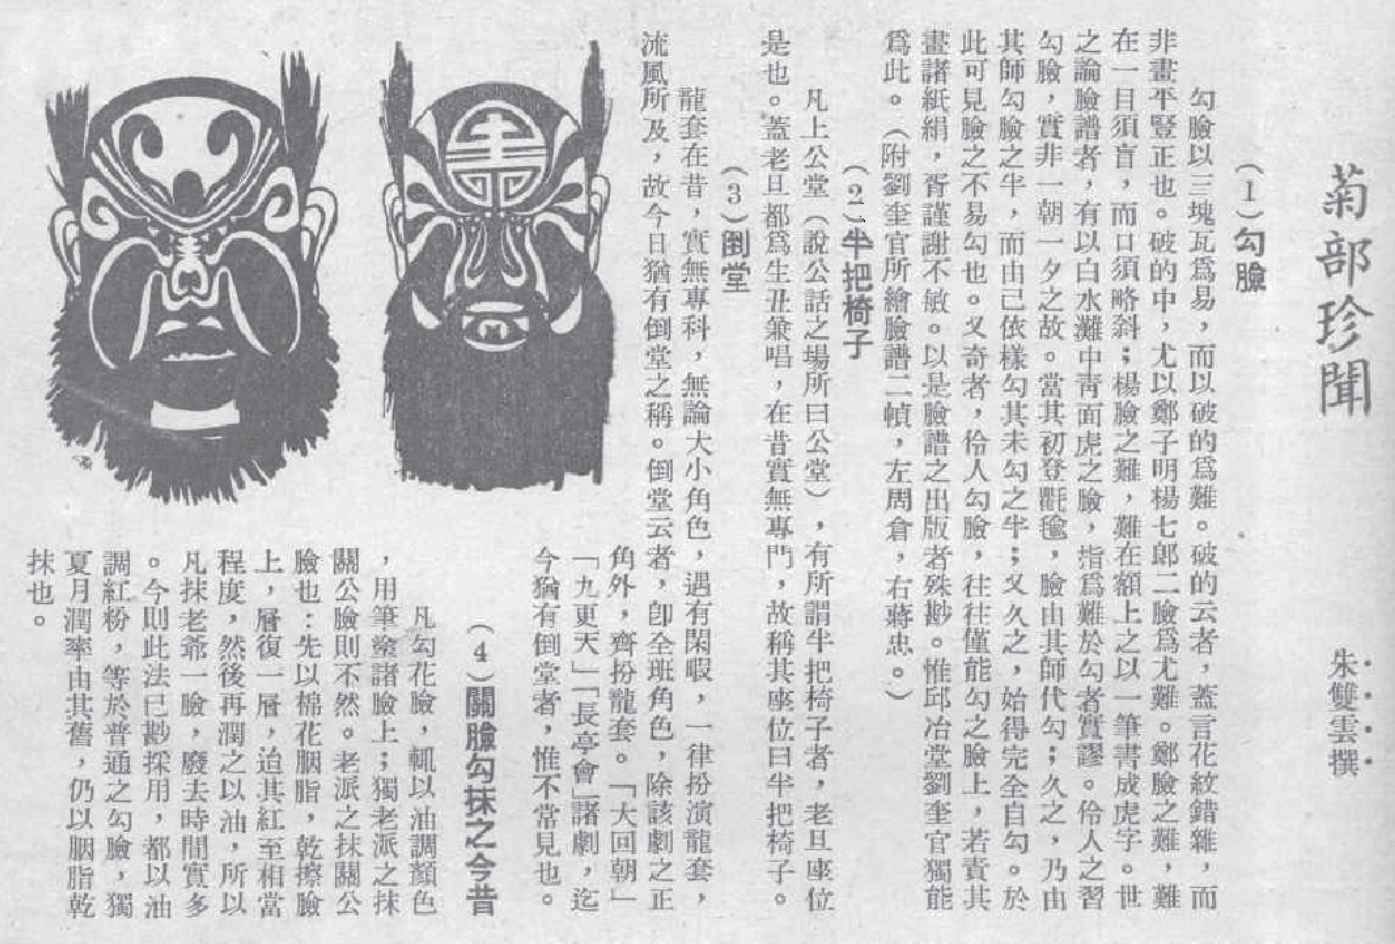 菊部珍聞
朱雙雲撰
(1)勾臉
勾臉以三塊瓦爲易，而以破的爲難。破的云者，蓋言花紋錯雜，而
非畫平豎正也。破的中，尤以鄭子明楊七郎二臉爲尤難。鄭臉之難，難
在一目須盲，而口須略斜；楊臉之難，難在額上之以一筆書成虎字。世
之論臉譜者，有以白水灘中靑面虎之臉，指爲難於勾者實謬。伶人之習
勾臉，實非一朝一夕之故。當其初登氍毹，臉由其師代勾；久之，乃由
其師勾臉之半，而由已依樣勾其未勾之半；又久之，始得完全自勾。於
此可見臉之不易勾也。又奇者，伶人勾臉，往往僅能勾之臉上，若責其
畫諸紙絹，胥謹謝不敏。以是臉譜之出版者殊尠。惟邱冶堂劉奎官獨能
爲此。（附劉奎官所繪臉譜二幀，左周倉，右蔣忠。）
(2)半把椅子
凡上公堂（說公話之場所曰公堂），有所謂半把椅子者，老旦座位
是也。蓋老旦都爲生丑兼唱，在昔實無專門，故稱其座位曰半把椅子。
(3)倒堂
龍套在昔，實無專科，無論大小角色，遇有閑暇，一律扮演龍套，
流風所及，故今日猶有倒堂之稱。倒堂云者，卽全班角色，除該劇之正
角外，齊扮龍套。「大回朝」
「九更天」「長亭會」諸劇，迄
今猶有倒堂者，惟不常見也。
(4)關臉勾抹之今昔
凡勾花臉，輒以油調顏色
，用筆塗諸臉上；獨老派之抹
關公臉則不然。老派之抹關公
臉也：先以棉花胭脂，乾擦臉
上，層復一層，迨其紅至相當
程度，然後再潤之以油，所以
凡抹老爺一臉，廢去時間實多
。今則此法已尠採用，都以油
調紅粉，等於普通之勾臉，獨
夏月潤率由其舊，仍以胭脂乾
抹也。